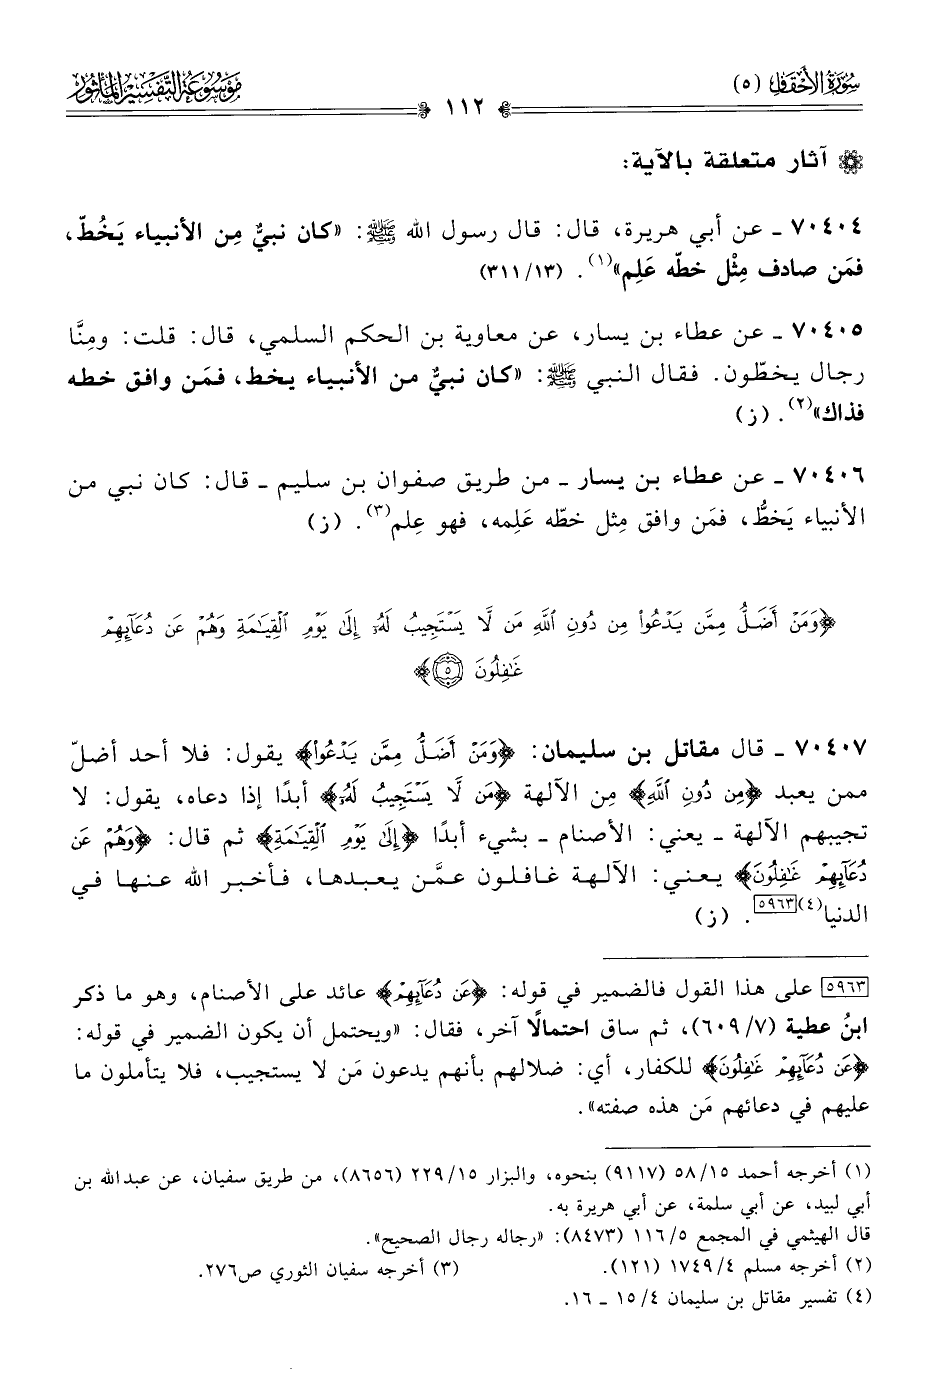 سُورَةُ الأَحْقَفَاِ (٥)
١١٢
مَوْسُوعَة التَّفْسِير المَأْثُور
آثار متعلقة بالآية:
٧٠٤٠٤ ـ عن أبي هريرة، قال: قال رسول الله ﷺ: «كان نبيٌّ مِن الأنبياء يَخُطّ،
فمَن صادف مِثْل خطّه عَلِم»(١). (٣١١/١٣)
٧٠٤٠٥ ـ عن عطاء بن يسار، عن معاوية بن الحكم السلمي، قال: قلت: ومِنَّا
رجال يخطّون. فقال النبي ﷺ: «كان نبيٌّ من الأنبياء يخط، فمَن وافق خطه
فذاك»(٢). (ز)
٧٠٤٠٦ ـ عن عطاء بن يسار ـ من طريق صفوان بن سليم ـ قال: كان نبي من
الأنبياء يَخطُّ، فمَن وافق مِثل خطّه عَلِمه، فهو عِلم(٣). (ز)
﴿وَمَنْ أَضَلُّ مِمَّن يَدْعُواْ مِن دُونِ ٱللَّهِ مَن لَّا يَسْتَجِيبُ لَهُۥٓ إِلَىٰ يَوْمِ ٱلْقِيَٰمَةِ وَهُمْ عَن دُعَآئِهِمْ
غَٰفِلُونَ ٥﴾
٧٠٤٠٧ ـ قال مقاتل بن سليمان: ﴿وَمَنْ أَضَلُّ مِمَّن يَدْعُواْ﴾ يقول: فلا أحد أضلّ
ممن يعبد ﴿مِن دُونِ ٱللَّهِ﴾ مِن الآلهة ﴿مَن لَّا يَسْتَجِيبُ لَهُۥٓ﴾ أبدًا إذا دعاه، يقول: لا
تجيبهم الآلهة ـ يعني: الأصنام ـ بشيء أبدًا ﴿إِلَىٰ يَوْمِ ٱلْقِيَٰمَةِ﴾ ثم قال: ﴿وَهُمْ عَن
دُعَآئِهِمْ غَٰفِلُونَ﴾ يعني: الآلهة غافلون عمَّن يعبدها، فأخبر الله عنها في
الدنيا(٤)[٥٩٦٣]. (ز)
[٥٩٦٣] على هذا القول فالضمير في قوله: ﴿عَن دُعَآئِهِمْ﴾ عائد على الأصنام، وهو ما ذكر
ابنُ عطية (٦٠٩/٧)، ثم ساق احتمالًا آخر، فقال: «ويحتمل أن يكون الضمير في قوله:
﴿عَن دُعَآئِهِمْ غَٰفِلُونَ﴾ للكفار، أي: ضلالهم بأنهم يدعون مَن لا يستجيب، فلا يتأملون ما
عليهم في دعائهم مَن هذه صفته».
(١) أخرجه أحمد ٥٨/١٥ (٩١١٧) بنحوه، والبزار ٢٢٩/١٥ (٨٦٥٦)، من طريق سفيان، عن عبدالله بن
أبي لبيد، عن أبي سلمة، عن أبي هريرة به.
قال الهيثمي في المجمع ١١٦/٥ (٨٤٧٣): «رجاله رجال الصحيح».
(٢) أخرجه مسلم ١٧٤٩/٤ (١٢١). (٣) أخرجه سفيان الثوري ص٢٧٦.
(٤) تفسير مقاتل بن سليمان ١٥/٤ ـ ١٦.